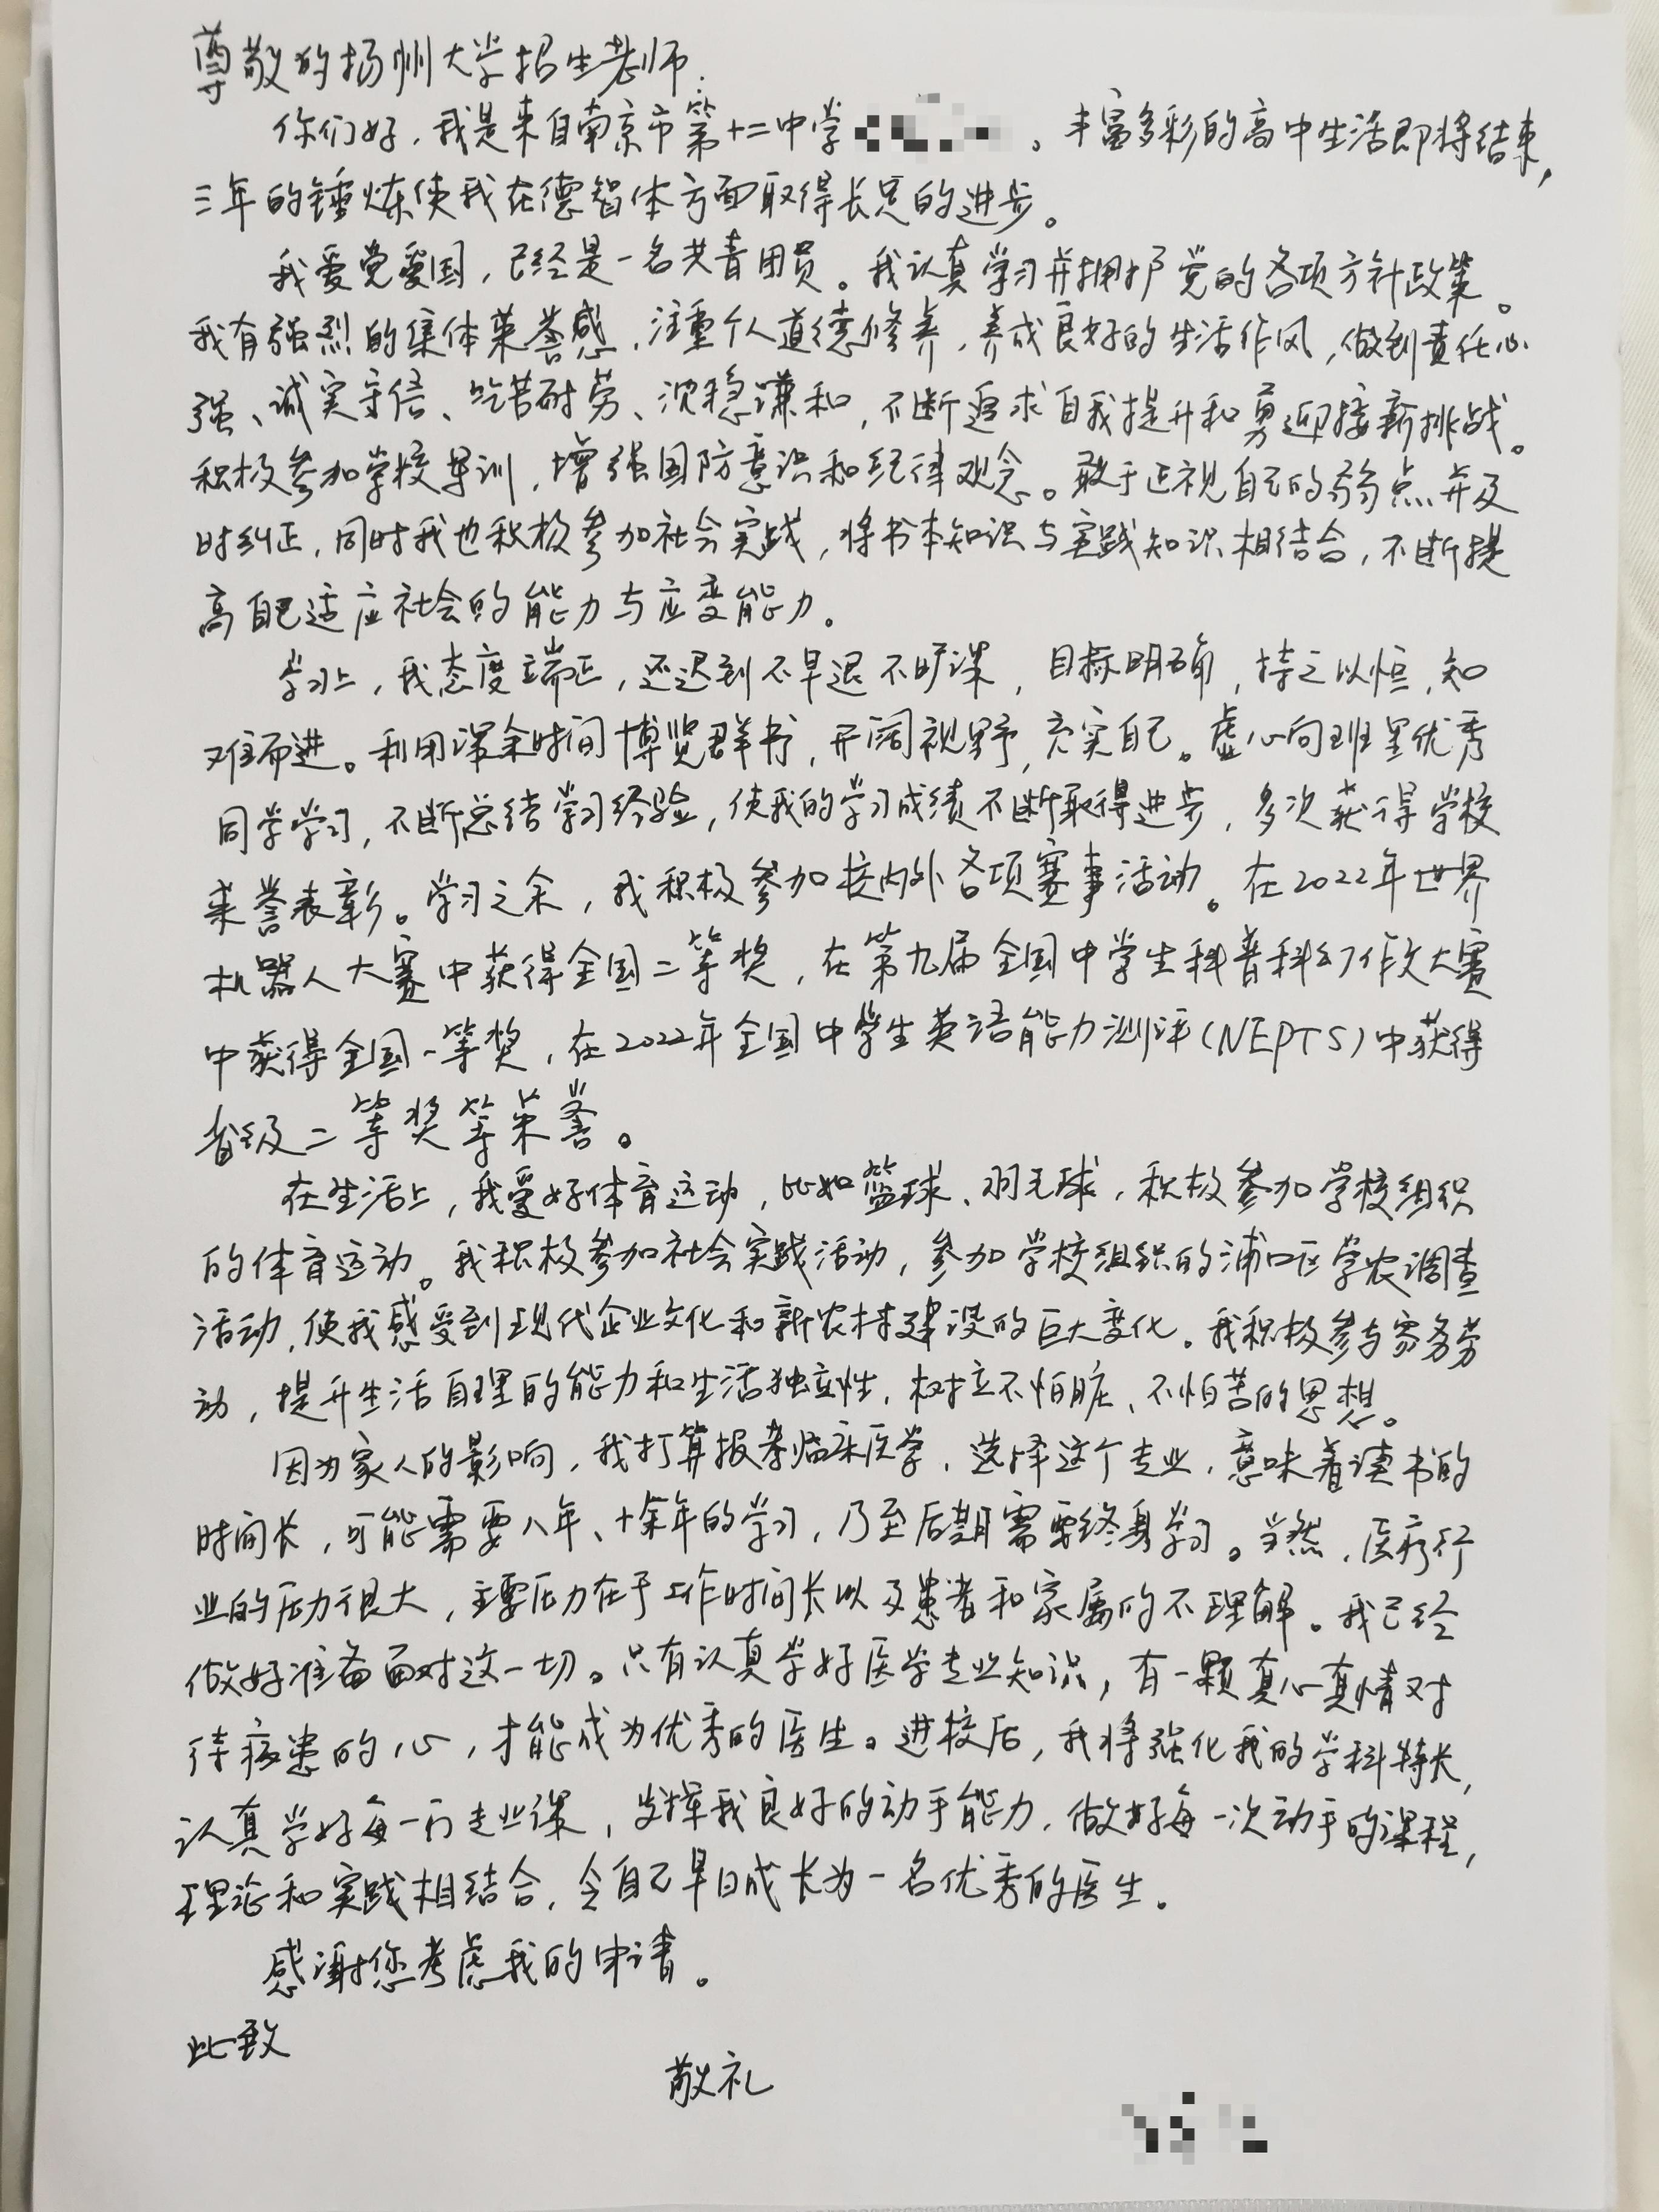 尊敬的扬州大学招生老师：
你们好，我是来自南京市第十二中学 。丰富多彩的高中生活即将结束，
三年的锤炼使我在德智体方面取得长足的进步。
我爱党爱国，已经是一名共青团员。我认真学习并拥护党的各项方针政策。
我有强烈的集体荣誉感，注重个人道德修养，养成良好的生活作风，做到责任心
强、诚实守信、吃苦耐劳、沉稳谦和，不断追求自我提升和勇迎接新挑战。
积极参加学校军训，增强国防意识和纪律观念。敢于正视自己的弱点并及
时纠正，同时我也积极参加社会实践，将书本知识与实践知识相结合，不断提
高自己适应社会的能力与应变能力。
学习上，我态度端正，还迟到不早退不旷课，目标明确，持之以恒，知
难而进。利用课余时间博览群书，开阔视野，充实自己。虚心向班里优秀
同学学习，不断总结学习经验，使我的学习成绩不断取得进步，多次获得学校
荣誉表彰。学习之余，我积极参加校内外各项赛事活动。在2022年世界
机器人大赛中获得全国二等奖，在第九届全国中学生科普科幻作文大赛
中获得全国一等奖，在2022年全国中学生英语能力测评(NEPTS)中获得
省级二等奖等荣誉。
在生活上，我爱好体育运动，比如篮球、羽毛球，积极参加学校组织
的体育运动。我积极参加社会实践活动，参加学校组织的浦口区学农调查
活动，使我感受到现代企业文化和新农村建设的巨大变化。我积极参与家务劳
动，提升生活自理的能力和生活独立性，树立不怕脏、不怕苦的思想。
因为家人的影响，我打算报考临床医学，选择这个专业，意味着读书的
时间长，可能需要八年、十余年的学习，乃至后期需要终身学习。当然，医疗行
业的压力很大，主要压力在于工作时间长以及患者和家属的不理解。我已经
做好准备面对这一切。只有认真学好医学专业知识，有一颗真心真情对
待病患的心，才能成为优秀的医生。进校后，我将强化我的学科特长，
认真学好每一门专业课，发挥我良好的动手能力，做好每一次动手的课程，
理论和实践相结合，令自己早日成长为一名优秀的医生。
感谢您考虑我的申请。
此致
敬礼